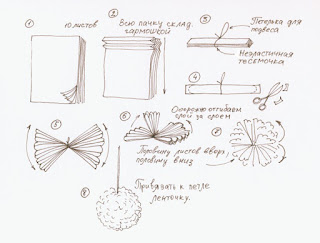 1
10 листов
2
Всю пачку склад.
гармошкой
3
Петелька для
подвеса
Неэластичная
тесёмочка
4
5
6
Осторожно отгибаем
слой за слоем
Половину листов вверх,
половину вниз
7
8
Привязать к петле
ленточку.